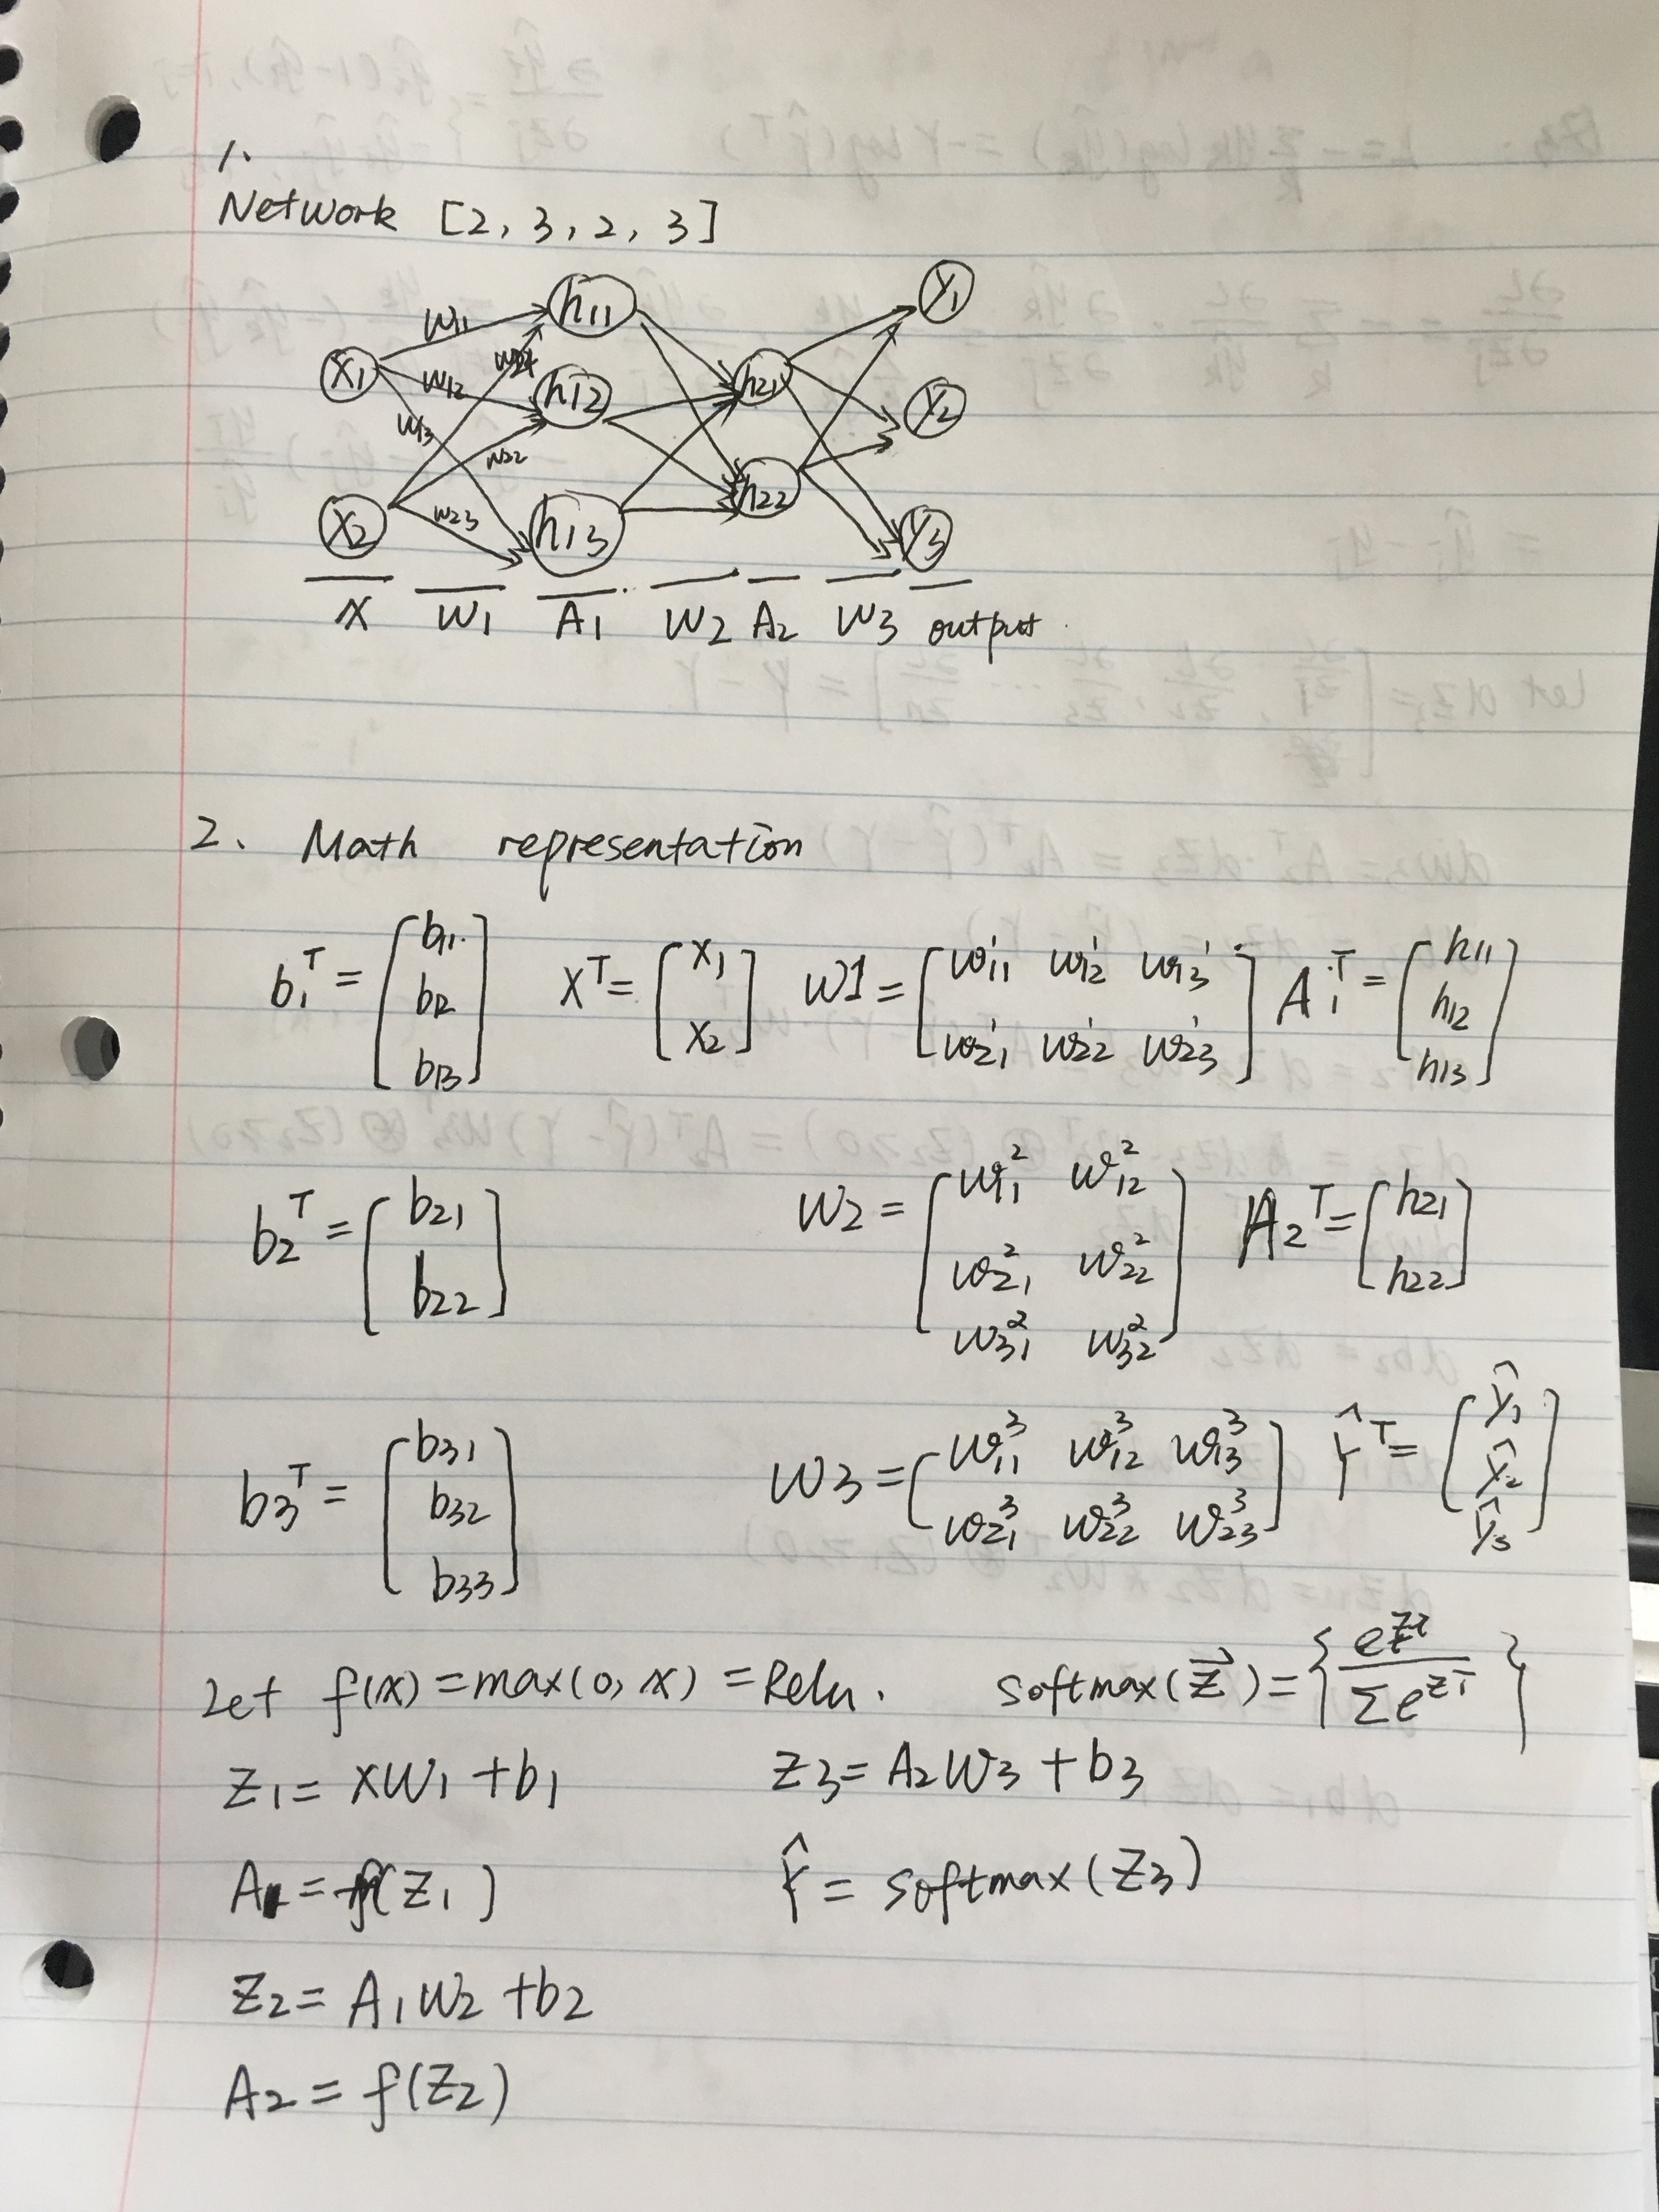 1.
Network [2, 3, 2, 3]
x1 w11 w12 w13 h11 h12 h13 h21 h22 y1 y2 y3
x2 w22 w23
X W1 A1 W2 A2 W3 output
2. Math representation
b1^T = [b11 b12 b13] X^T = [x1 x2] W1 = [w11^1 w12^1 w13^1 w21^1 w22^1 w23^1] A1^T = [h11 h12 h13]
b2^T = [b21 b22] W2 = [w11^2 w12^2 w21^2 w22^2 w31^2 w32^2] A2^T = [h21 h22]
b3^T = [b31 b32 b33] W3 = [w11^3 w12^3 w13^3 w21^3 w22^3 w23^3] Ŷ^T = [ŷ1 ŷ2 ŷ3]
Let f(x) = max(0, x) = Relu. softmax(z⃗) = { e^zi / Σ e^zi }
Z1 = XW1 + b1 Z3 = A2W3 + b3
A1 = f(Z1) Ŷ = softmax(Z3)
Z2 = A1W2 + b2
A2 = f(Z2)